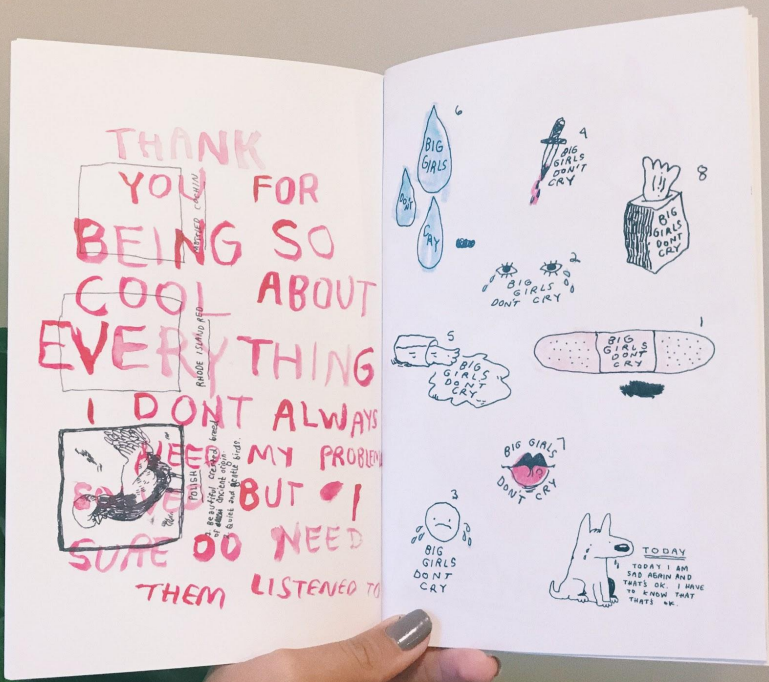 THANK
YOU FOR
BEING SO
COOL ABOUT
EVERYTHING
I DONT ALWAYS
NEED MY PROBLEMS
SOLVED BUT I
SURE DO NEED
THEM LISTENED TO
COCHIN
RHODE ISLAND RED
POLISH
Beautiful crested breed
of ancient origin
Quiet and gentle birds.
6
BIG
GIRLS
DON'T
CRY
4
BIG
GIRLS
DON'T
CRY
8
BIG
GIRLS
DONT
CRY
2
BIG
GIRLS
DON'T CRY
5
BIG
GIRLS
DON'T
CRY
1
BIG
GIRLS
DONT
CRY
7
BIG GIRLS
DON'T CRY
3
BIG
GIRLS
DONT
CRY
TODAY
TODAY I AM
SAD AGAIN AND
THAT'S OK. I HAVE
TO KNOW THAT
THAT'S OK.